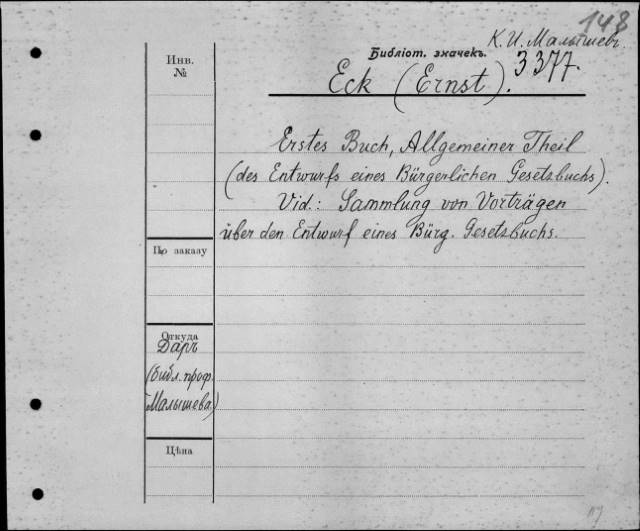 148
К. И. Малышевъ.
Библіот. значекъ.
3377.
Eck (Ernst).
Инв.
№
Erstes Buch, Allgemeiner Theil
(des Entwurfs eines Bürgerlichen Gesetzbuchs).
Vid.: Sammlung von Vorträgen
über den Entwurf eines Bürg. Gesetzbuchs.
По заказу
Откуда
Даръ
(библ. проф.
Малышева)
Цѣна